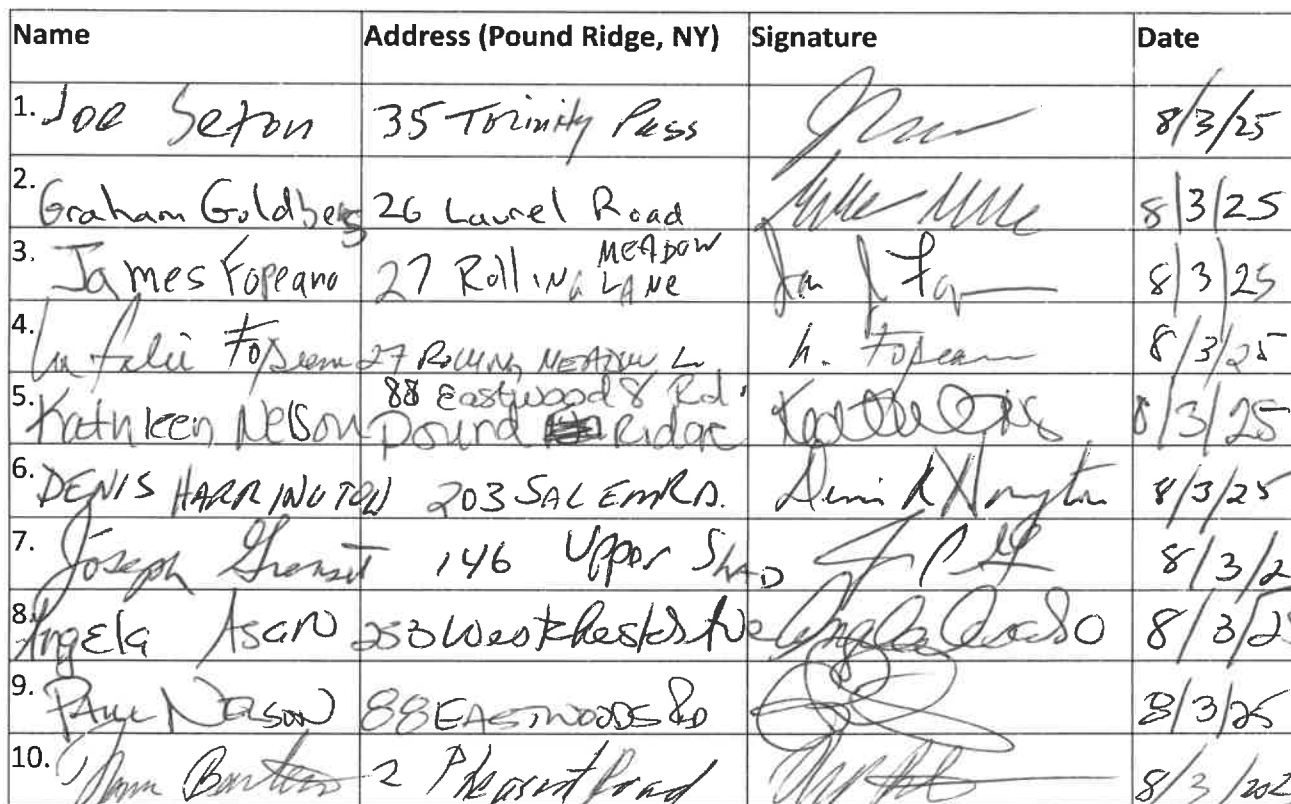 Name Address (Pound Ridge, NY) Signature Date
1. Joe Seton 35 Trinity Pass 8/3/25
2. Graham Goldberg 26 Laurel Road 8/3/25
3. James Fopeano 27 Rolling MEADOW LANE 8/3/25
4. Fopeano 27 ROLLING MEADOW L 8/3/25
5. Kathleen Nelson 88 Eastwoods Rd
Pound Ridge 8/3/25
6. DENIS HARRINGTON 203 SALEM RD. 8/3/25
7. Joseph 146 Upper Shad 8/3/2
8. Angela Asaro 253 Westchester Ave Angela Asaro 8/3/25
9. PAUL NELSON 88 EASTWOODS RD 8/3/25
10. 2 Pheasant Road 8/3/202